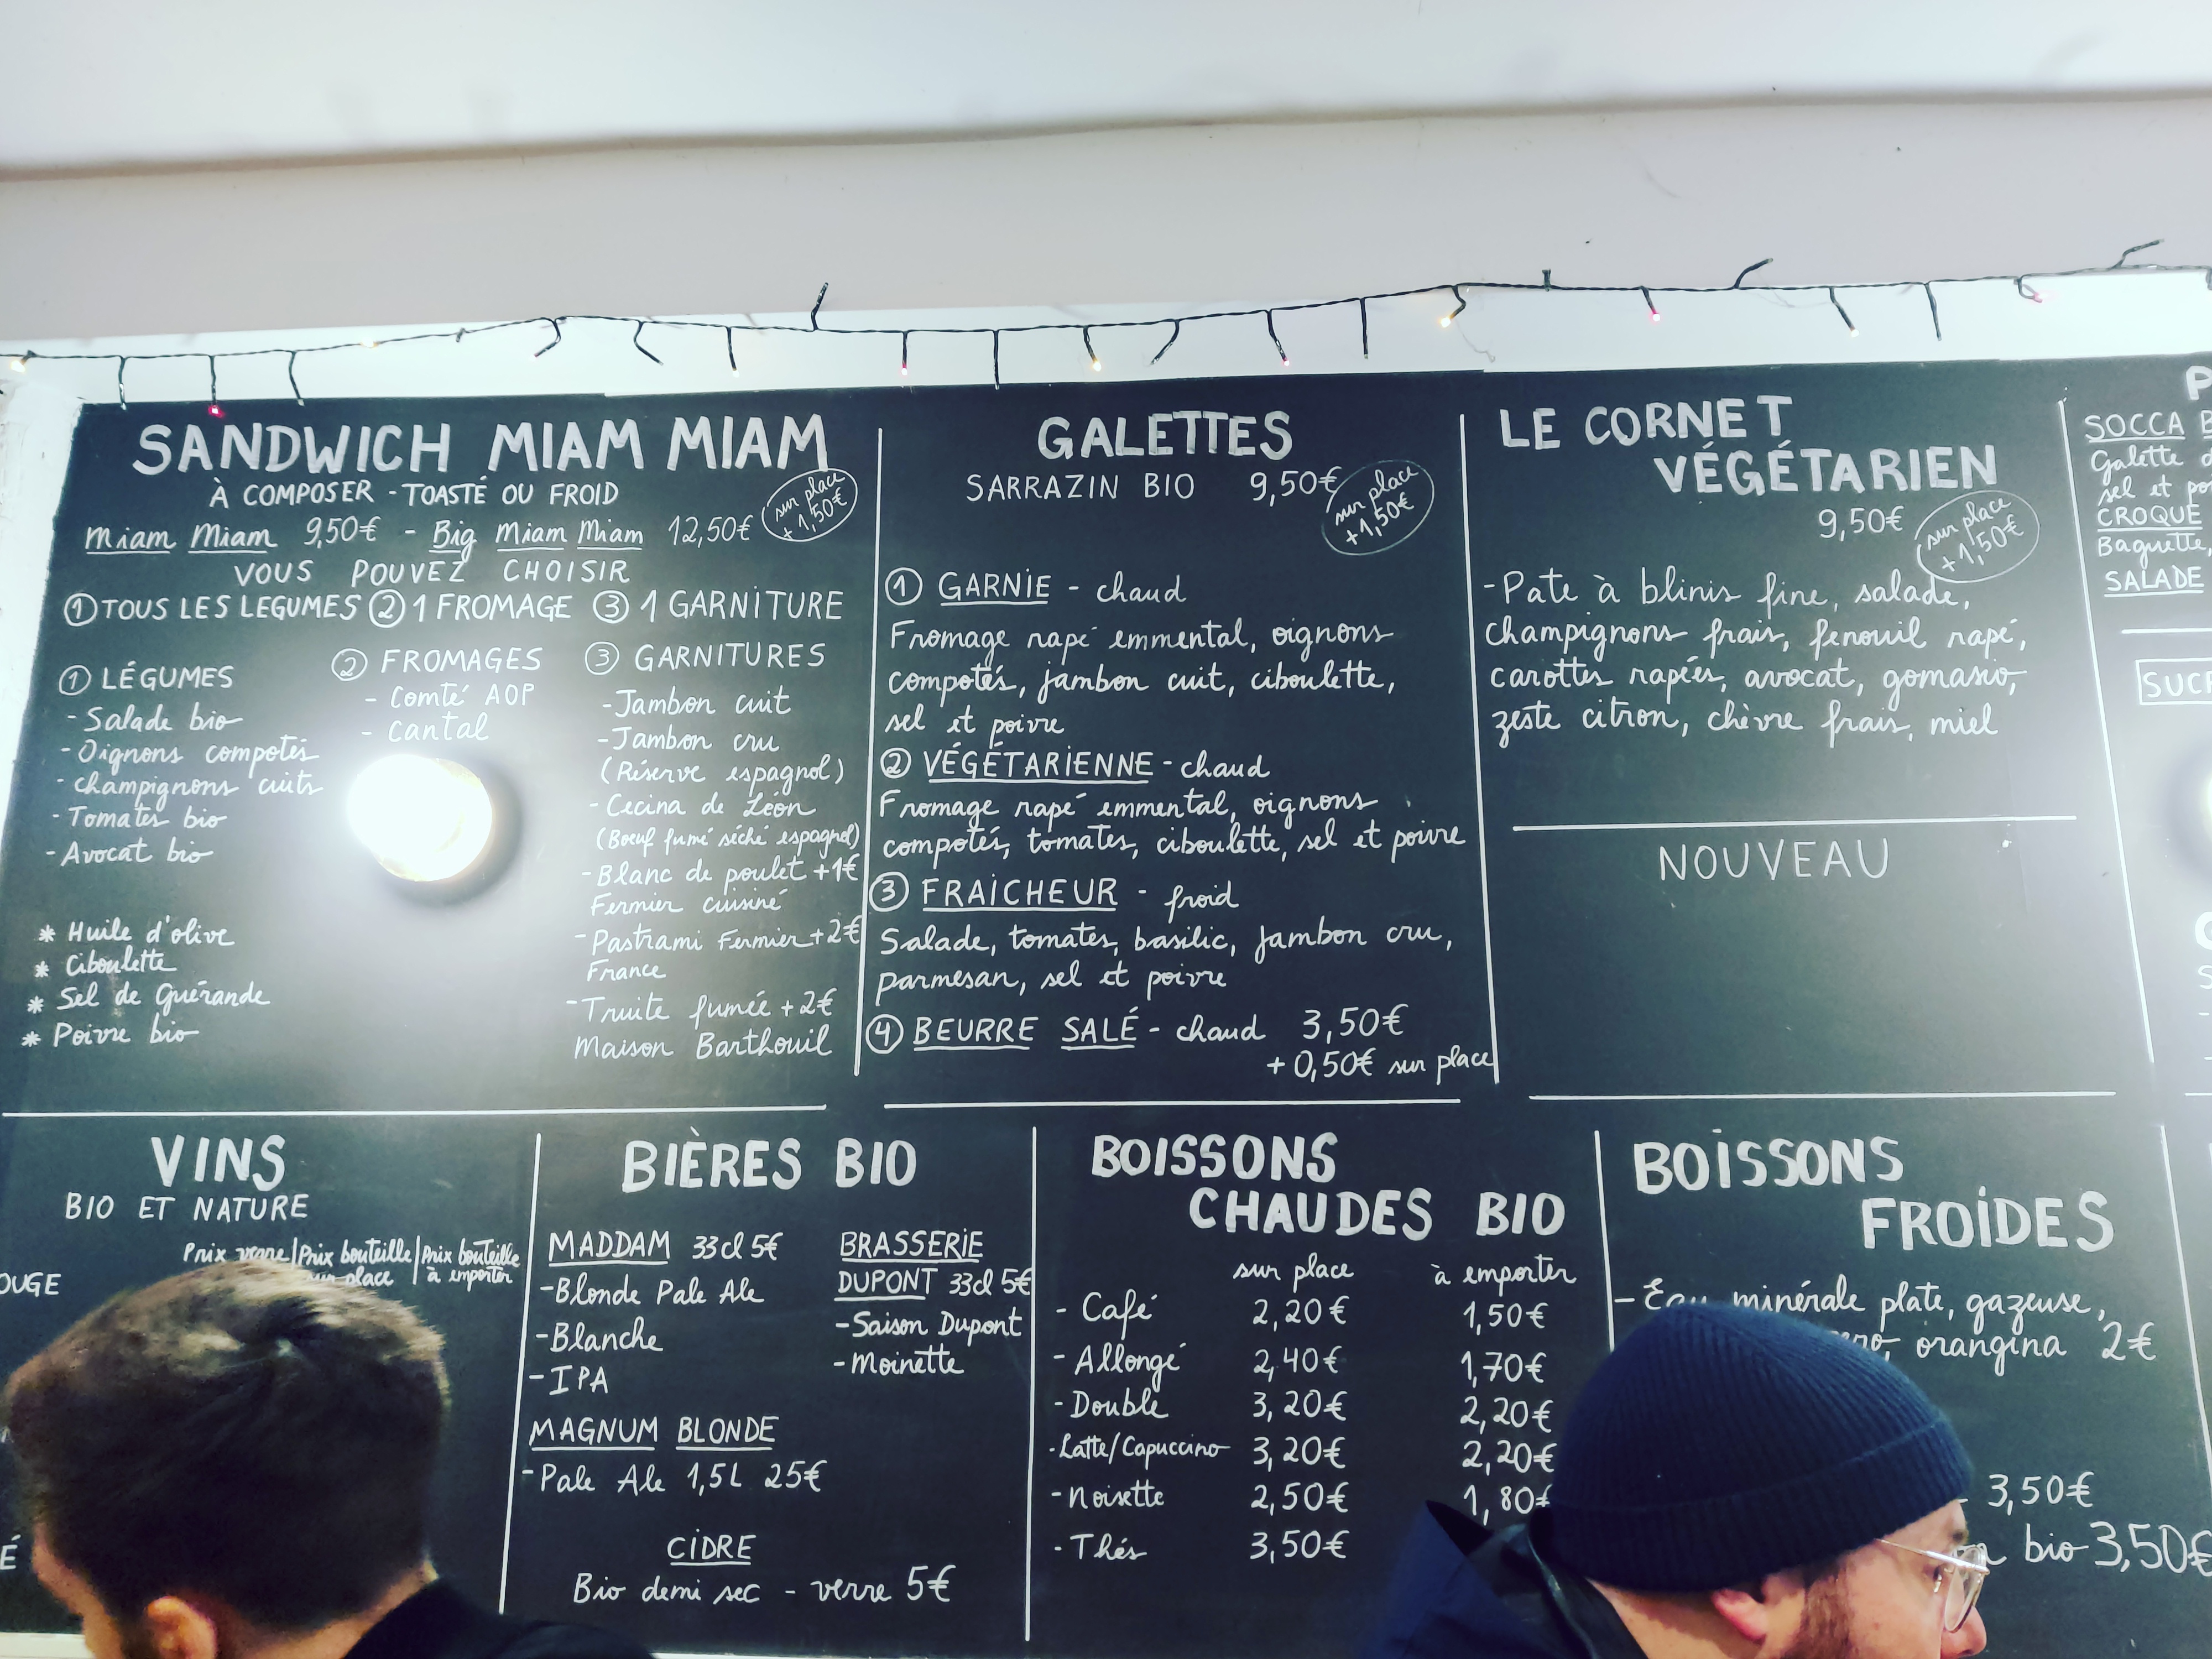 SANDWICH MIAM MIAM
À COMPOSER - TOASTÉ OU FROID
Miam Miam 9,50€ - Big Miam Miam 12,50€
sur place
+ 1,50€
VOUS POUVEZ CHOISIR
① TOUS LES LEGUMES ② 1 FROMAGE ③ 1 GARNITURE
① LÉGUMES
- Salade bio
- Oignons compotés
- champignons cuits
- Tomates bio
- Avocat bio
* Huile d'olive
* Ciboulette
* Sel de Guérande
* Poivre bio
② FROMAGES
- Comté AOP
- Cantal
③ GARNITURES
- Jambon cuit
- Jambon cru
(Réserve espagnol)
- Cecina de Léon
(Boeuf fumé séché espagnol)
- Blanc de poulet +1€
Fermier cuisiné
- Pastrami Fermier +2€
France
- Truite fumée +2€
Maison Barthouil
GALETTES
SARRAZIN BIO 9,50€
sur place
+1,50€
① GARNIE - chaud
Fromage rapé emmental, oignons
compotés, jambon cuit, ciboulette,
sel et poivre
② VÉGÉTARIENNE - chaud
Fromage rapé emmental, oignons
compotés, tomates, ciboulette, sel et poivre
③ FRAICHEUR - froid
Salade, tomates, basilic, jambon cru,
parmesan, sel et poivre
④ BEURRE SALÉ - chaud 3,50€
+ 0,50€ sur place
LE CORNET
VÉGÉTARIEN
9,50€
sur place
+ 1,50€
- Pate à blinis fine, salade,
champignons frais, fenouil rapé,
carottes rapées, avocat, gomasio,
zeste citron, chèvre frais, miel
NOUVEAU
SOCCA
Galette
sel et
CROQUE
Baguette,
SALADE
VINS
BIO ET NATURE
Prix verre | Prix bouteille | Prix bouteille
place | à emporter
BIÈRES BIO
MADDAM 33cl 5€
- Blonde Pale Ale
- Blanche
- IPA
MAGNUM BLONDE
- Pale Ale 1,5L 25€
BRASSERIE
DUPONT 33cl 5€
- Saison Dupont
- Moinette
CIDRE
Bio demi sec - verre 5€
BOISSONS
CHAUDES BIO
sur place à emporter
- Café 2,20€ 1,50€
- Allongé 2,40€ 1,70€
- Double 3,20€ 2,20€
- Latte/Capuccino 3,20€ 2,20€
- Noisette 2,50€ 1,80€
- Thés 3,50€
BOISSONS
FROIDES
- Eau minérale plate, gazeuse,
orangina 2€
3,50€
bio 3,50€